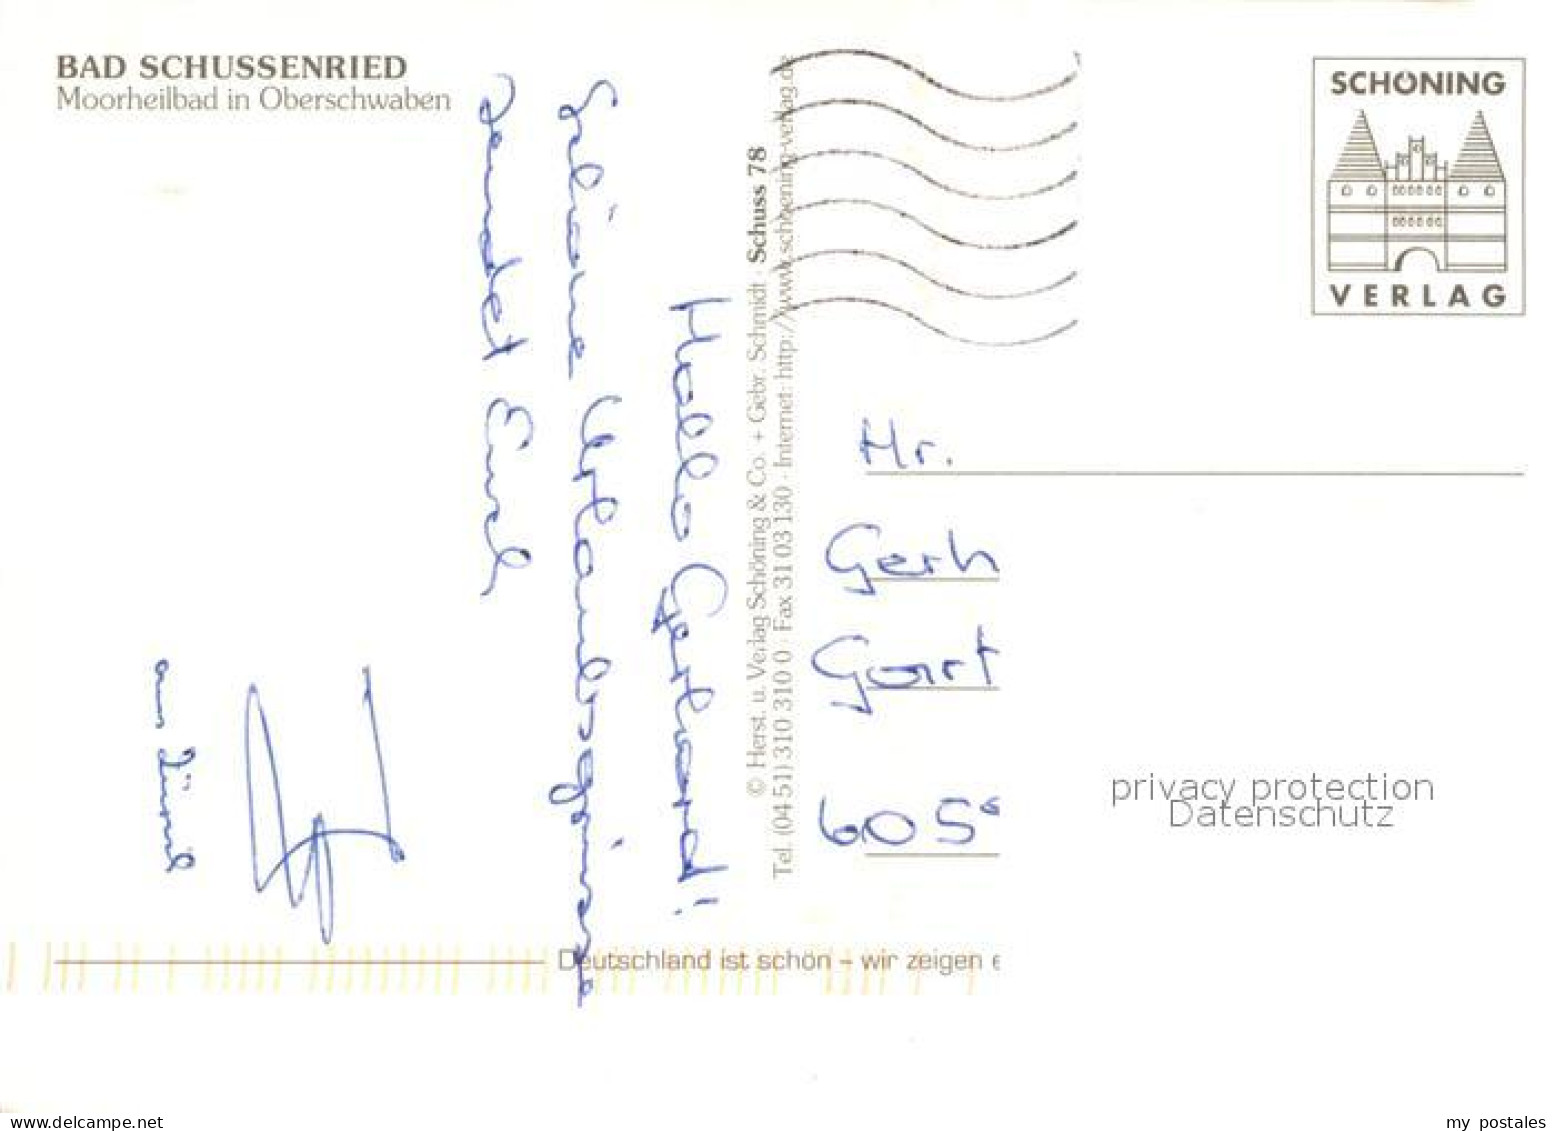 BAD SCHUSSENRIED
Moorheilbad in Oberschwaben
Hallo Gerhard!
Schöne Urlaubsgrüsse
sendet Euch
© Herst. u. Verlag Schöning & Co. + Gebr. Schmidt · Schuss 78
Tel. (04 51) 310 310 0 · Fax 31 03 130 · Internet: http://www.schoening-verlag.de
SCHÖNING
VERLAG
Hr.
Gerh
Gart
605
privacy protection
Datenschutz
Deutschland ist schön – wir zeigen e
delcampe.net
my postales